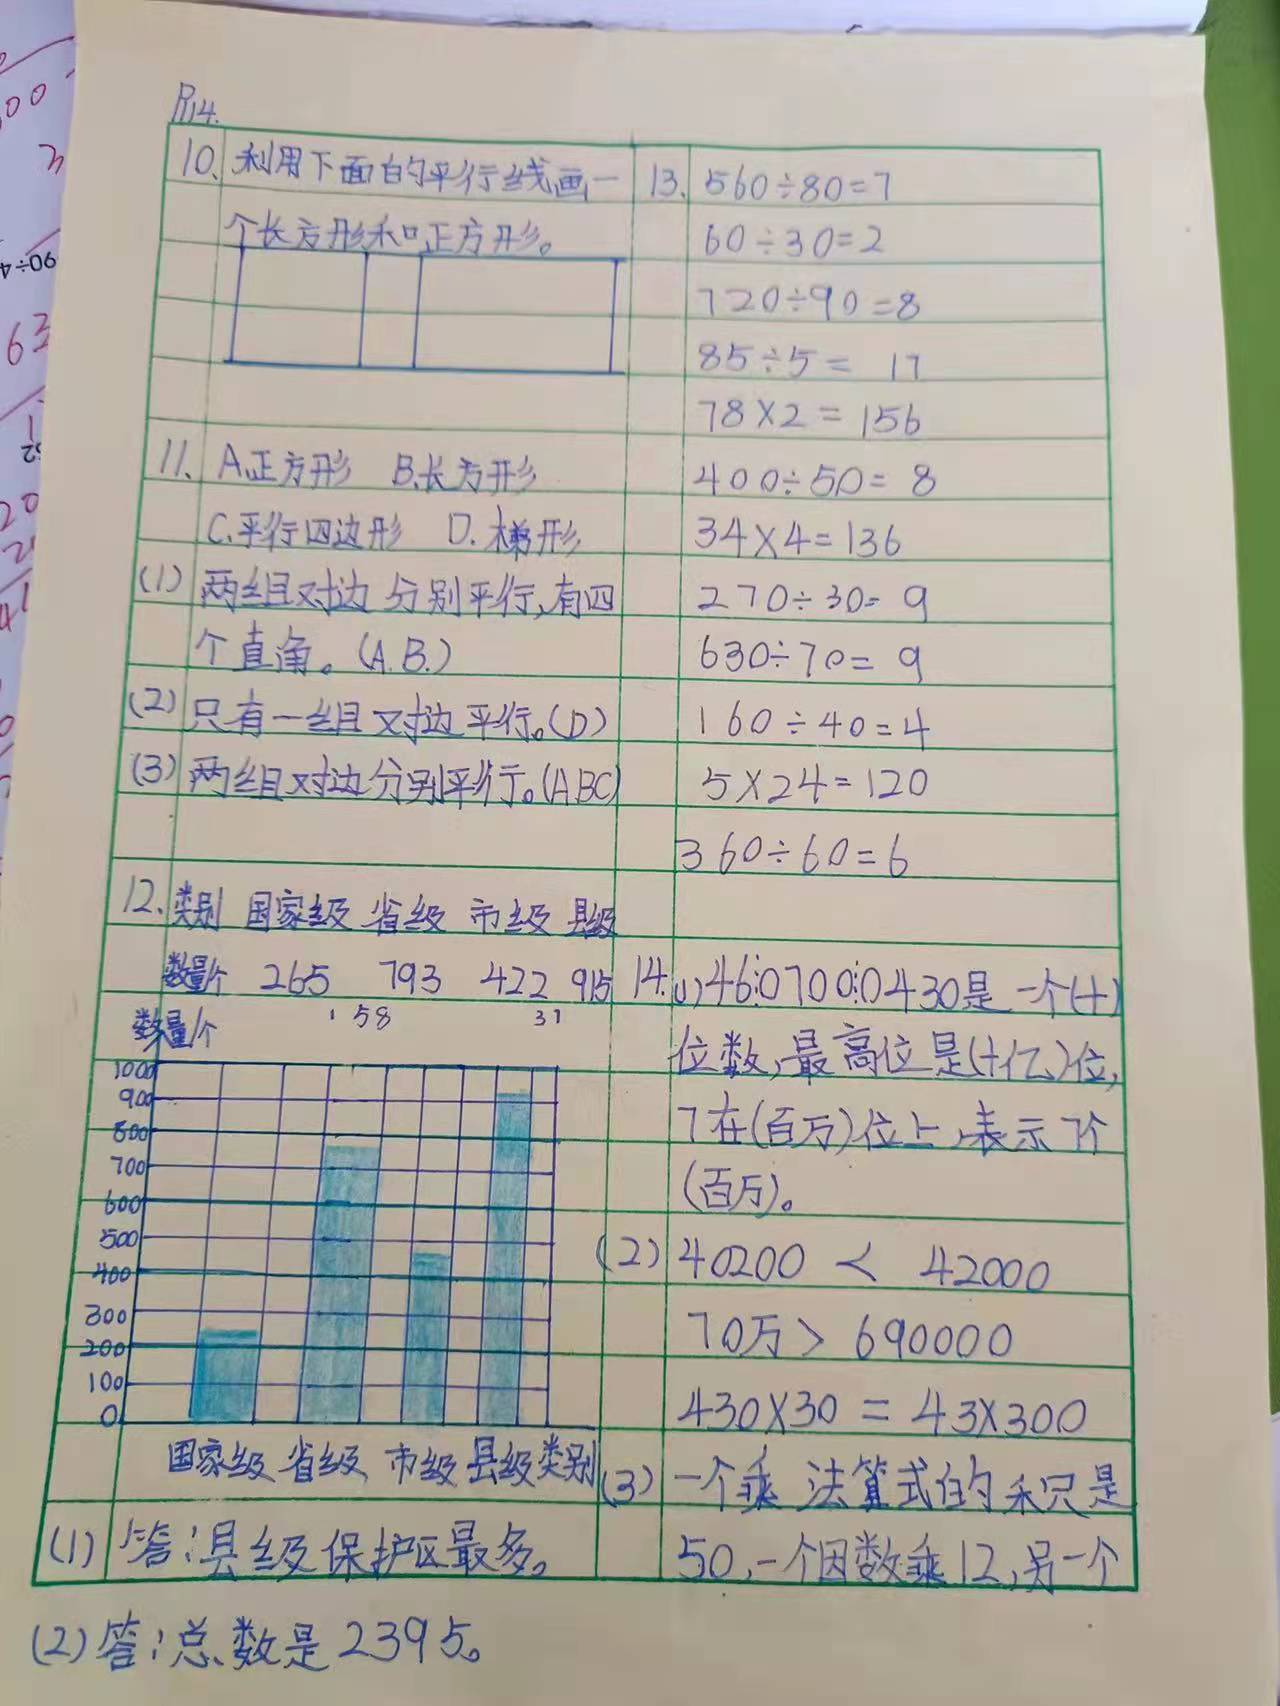 P114.
10. 利用下面的平行线画一
个长方形和正方形。
11. A.正方形 B.长方形
C.平行四边形 D.梯形
(1) 两组对边分别平行,有四
个直角。(A.B.)
(2) 只有一组对边平行。(D)
(3) 两组对边分别平行。(ABC)
12. 类别 国家级 省级 市级 县级
数量/个 265 793 422 915
158 31
数量/个
1000
900
800
700
600
500
400
300
200
100
0
国家级 省级 市级 县级 类别
(1) 答:县级保护区最多。
(2) 答:总数是2395。
13. 560÷80=7
60÷30=2
720÷90=8
85÷5= 17
78×2=156
400÷50=8
34×4=136
270÷30=9
630÷70=9
160÷40=4
5×24=120
360÷60=6
14. (1) 46:0700:0430是一个(十)
位数,最高位是(十亿)位,
7在(百万)位上,表示7个
(百万)。
(2) 40200 < 42000
70万> 690000
430×30=43×300
(3) 一个乘法算式的积是
50,一个因数乘12,另一个
00
3
90÷4
63
20